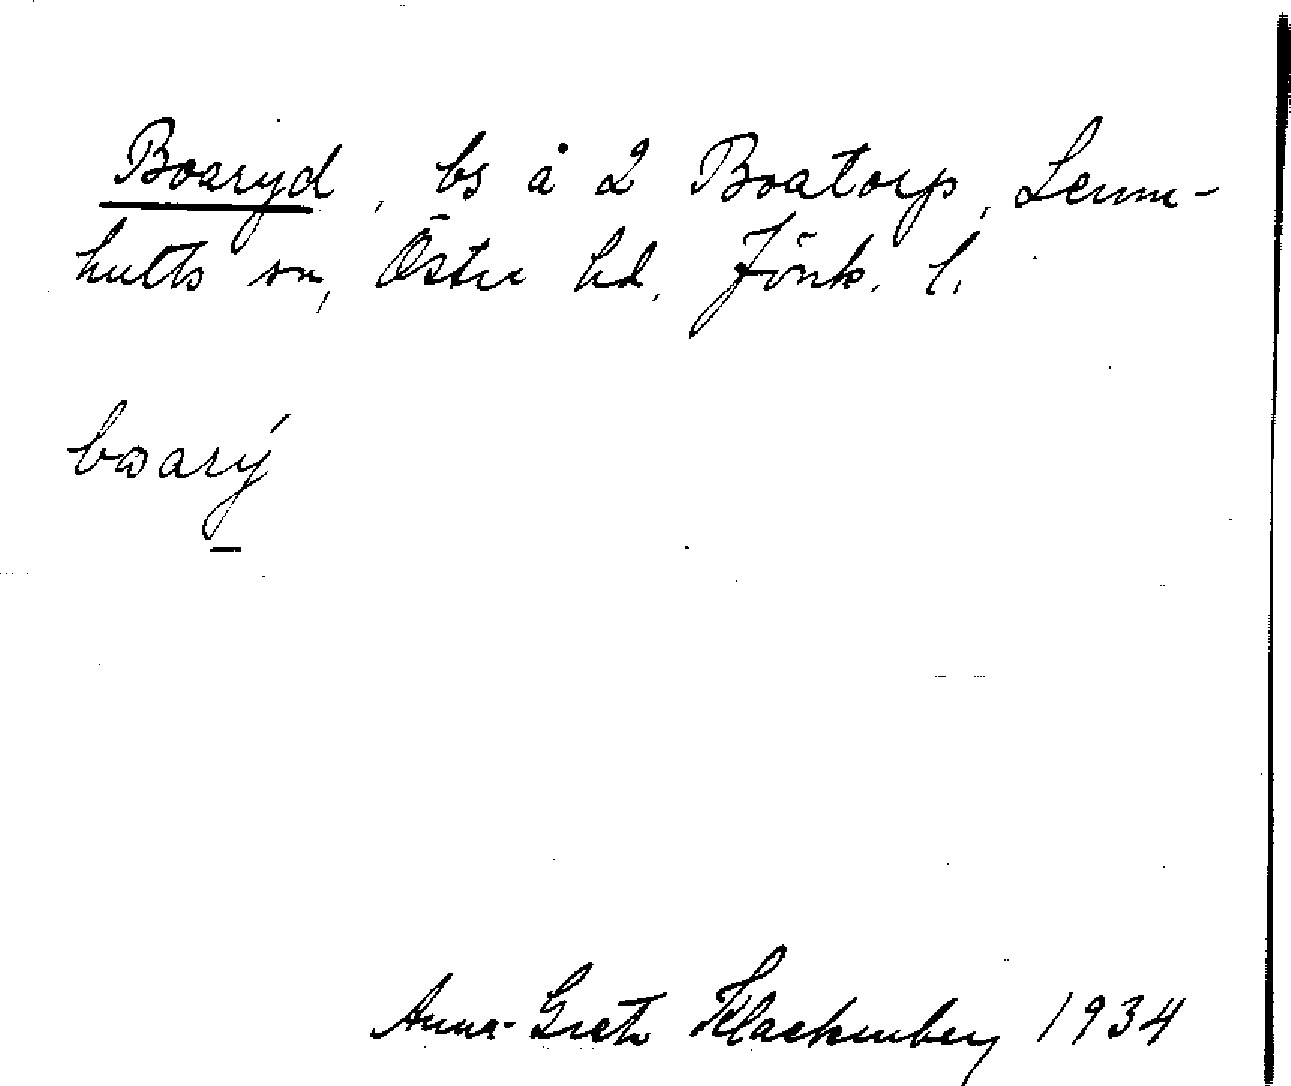 Boaryd, bs å 2 Boatorp, Lemn-
hults sn, Östra hd, Jönk. l.
boarý
Anna-Greta Klackenberg 1934